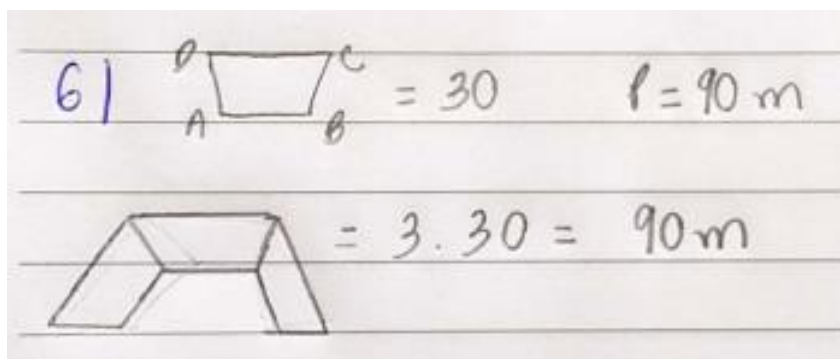 61 D C A B = 30 P = 90 m
= 3 . 30 = 90 m